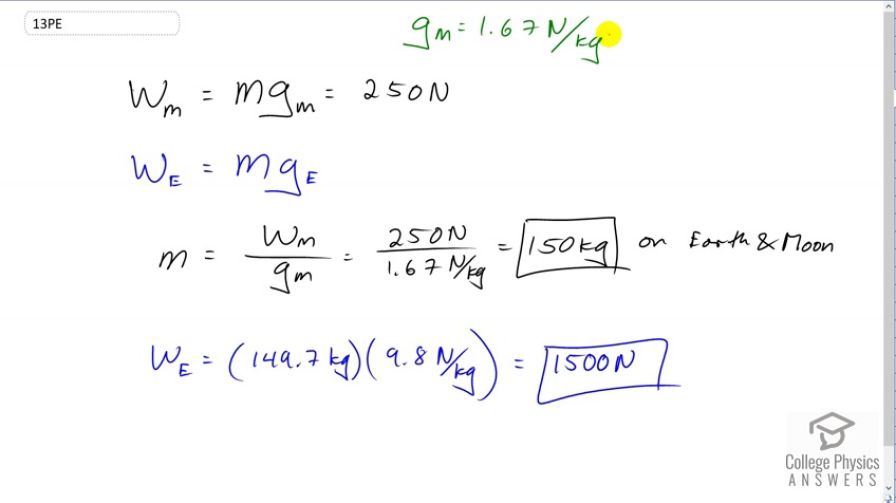 13PE
gₘ = 1.67 N/kg
Wₘ = mgₘ = 250N
W_E = mg_E
m = Wₘ/gₘ = 250N/1.67 N/kg = 150kg on Earth & Moon
W_E = (149.7 kg)(9.8 N/kg) = 1500N
College Physics
ANSWERS